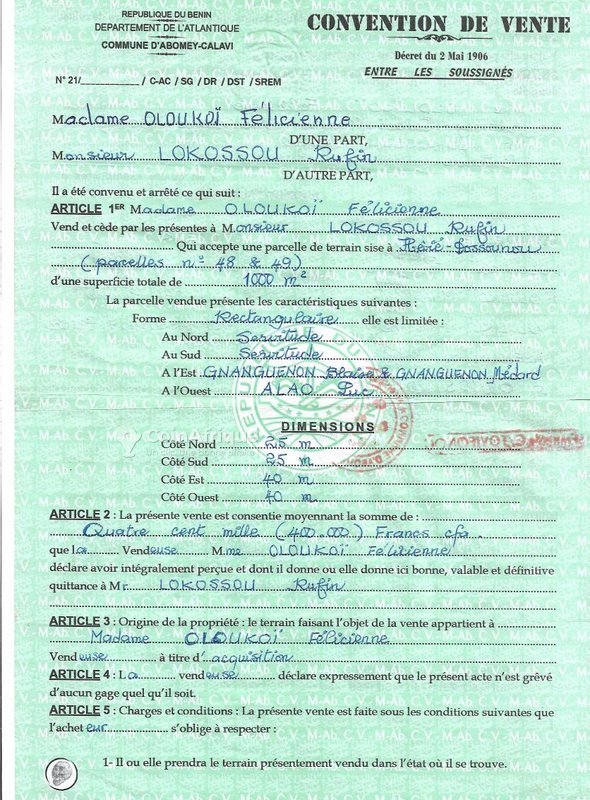 REPUBLIQUE DU BENIN
DEPARTEMENT DE L'ATLANTIQUE
COMMUNE D'ABOMEY-CALAVI
N° 21/__________ / C-AC / SG / DR / DST / SREM
CONVENTION DE VENTE
Décret du 2 Mai 1906
ENTRE LES SOUSSIGNÉS
Madame OLOUKOÏ Félicienne
D'UNE PART,
Monsieur LOKOSSOU Rufin
D'AUTRE PART,
Il a été convenu et arrêté ce qui suit :
ARTICLE 1ER Madame OLOUKOÏ Félicienne
Vend et cède par les présentes à Monsieur LOKOSSOU Rufin
Qui accepte une parcelle de terrain sise à
(parcelles n° 48 & 49)
d'une superficie totale de 1000 m²
La parcelle vendue présente les caractéristiques suivantes :
Forme Rectangulaire elle est limitée :
Au Nord Servitude
Au Sud Servitude
A l'Est GNANGUENON Blaise & GNANGUENON Médard
A l'Ouest ALAO Luc
DIMENSIONS
Côté Nord 25 m
Côté Sud 25 m
Côté Est 40 m
Côté Ouest 40 m
ARTICLE 2 : La présente vente est consentie moyennant la somme de :
Quatre cent mille (400.000) Francs cfa
que la Vendeuse Mme OLOUKOÏ Félicienne
déclare avoir intégralement perçue et dont il donne ou elle donne ici bonne, valable et définitive
quittance à Mr. LOKOSSOU Rufin
ARTICLE 3 : Origine de la propriété : le terrain faisant l'objet de la vente appartient à
Madame OLOUKOÏ Félicienne
Vendeuse à titre d'acquisition
ARTICLE 4 : La vendeuse déclare expressement que le présent acte n'est grévé
d'aucun gage quel qu'il soit.
ARTICLE 5 : Charges et conditions : La présente vente est faite sous les conditions suivantes que
l'acheteur s'oblige à respecter :
1- Il ou elle prendra le terrain présentement vendu dans l'état où il se trouve.